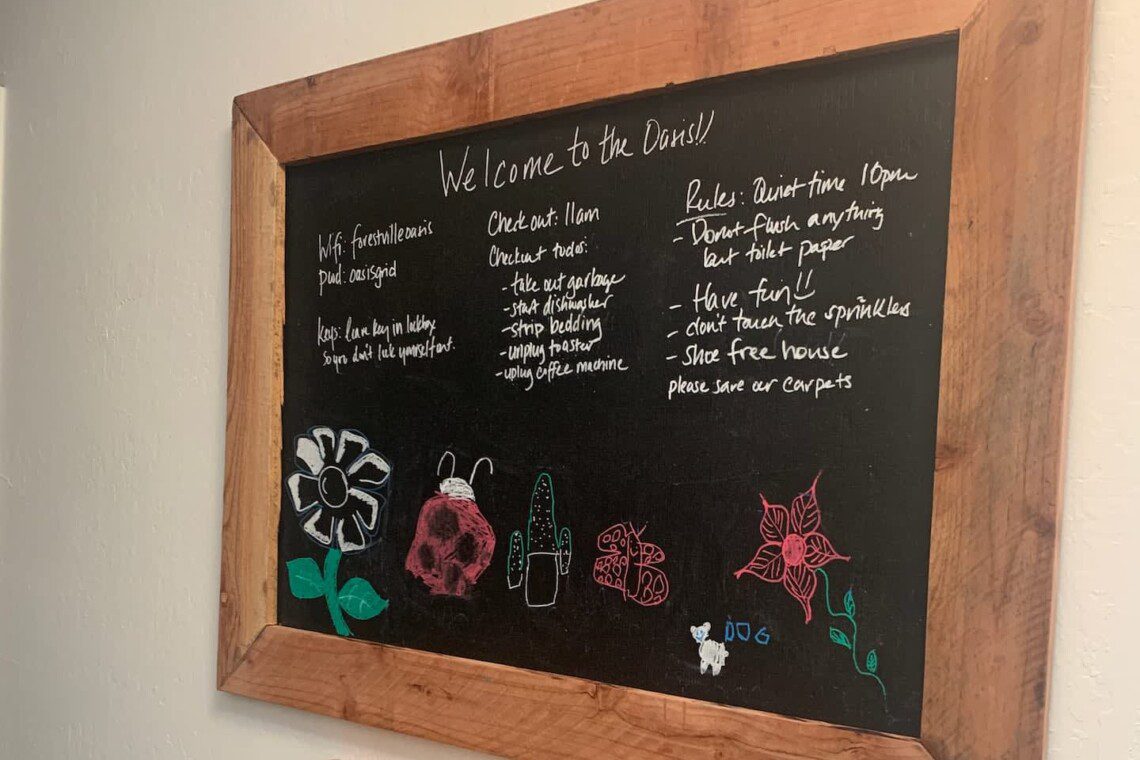 Welcome to the Oasis!!
Wifi: forestvilleoasis
pwd: oasisgrid
Keys: leave key in lockbox
so you don't lock yourself out.
Check out: 11am
Checkout todos:
- take out garbage
- start dishwasher
- strip bedding
- unplug toaster
- uplug coffee machine
Rules: Quiet time 10pm
- Do not flush anything
but toilet paper
- Have fun!!
- don't touch the sprinklers
- Shoe free house
please save our carpets
DOG